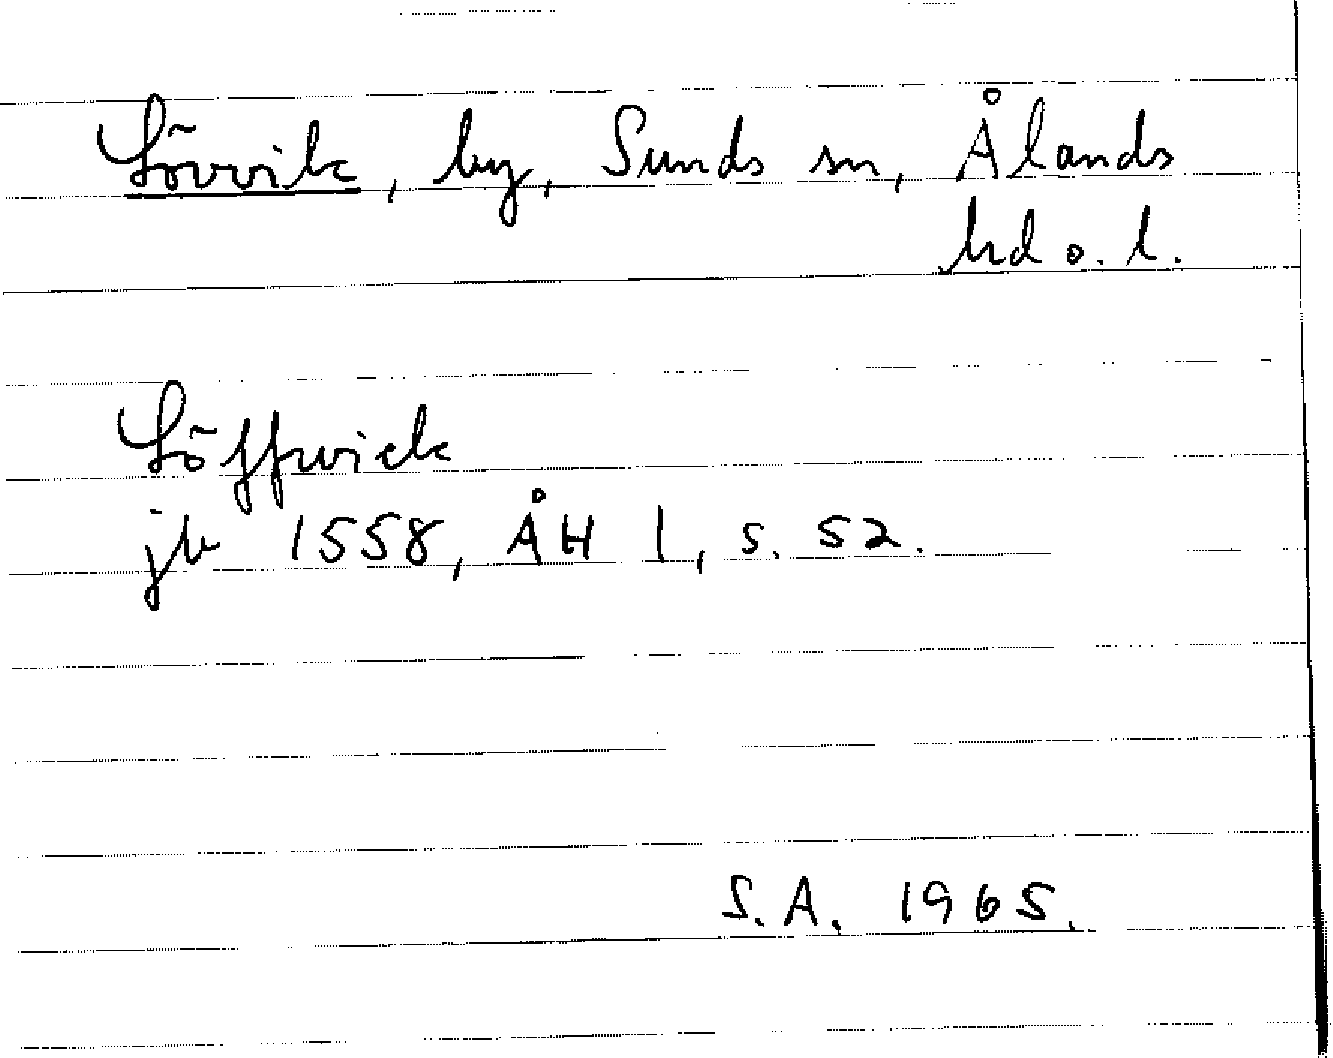 Lövvik, by, Sunds sn, Ålands
hd o. l.
Löffwick
jb 1558, ÅH 1, s. 52.
S.A. 1965.